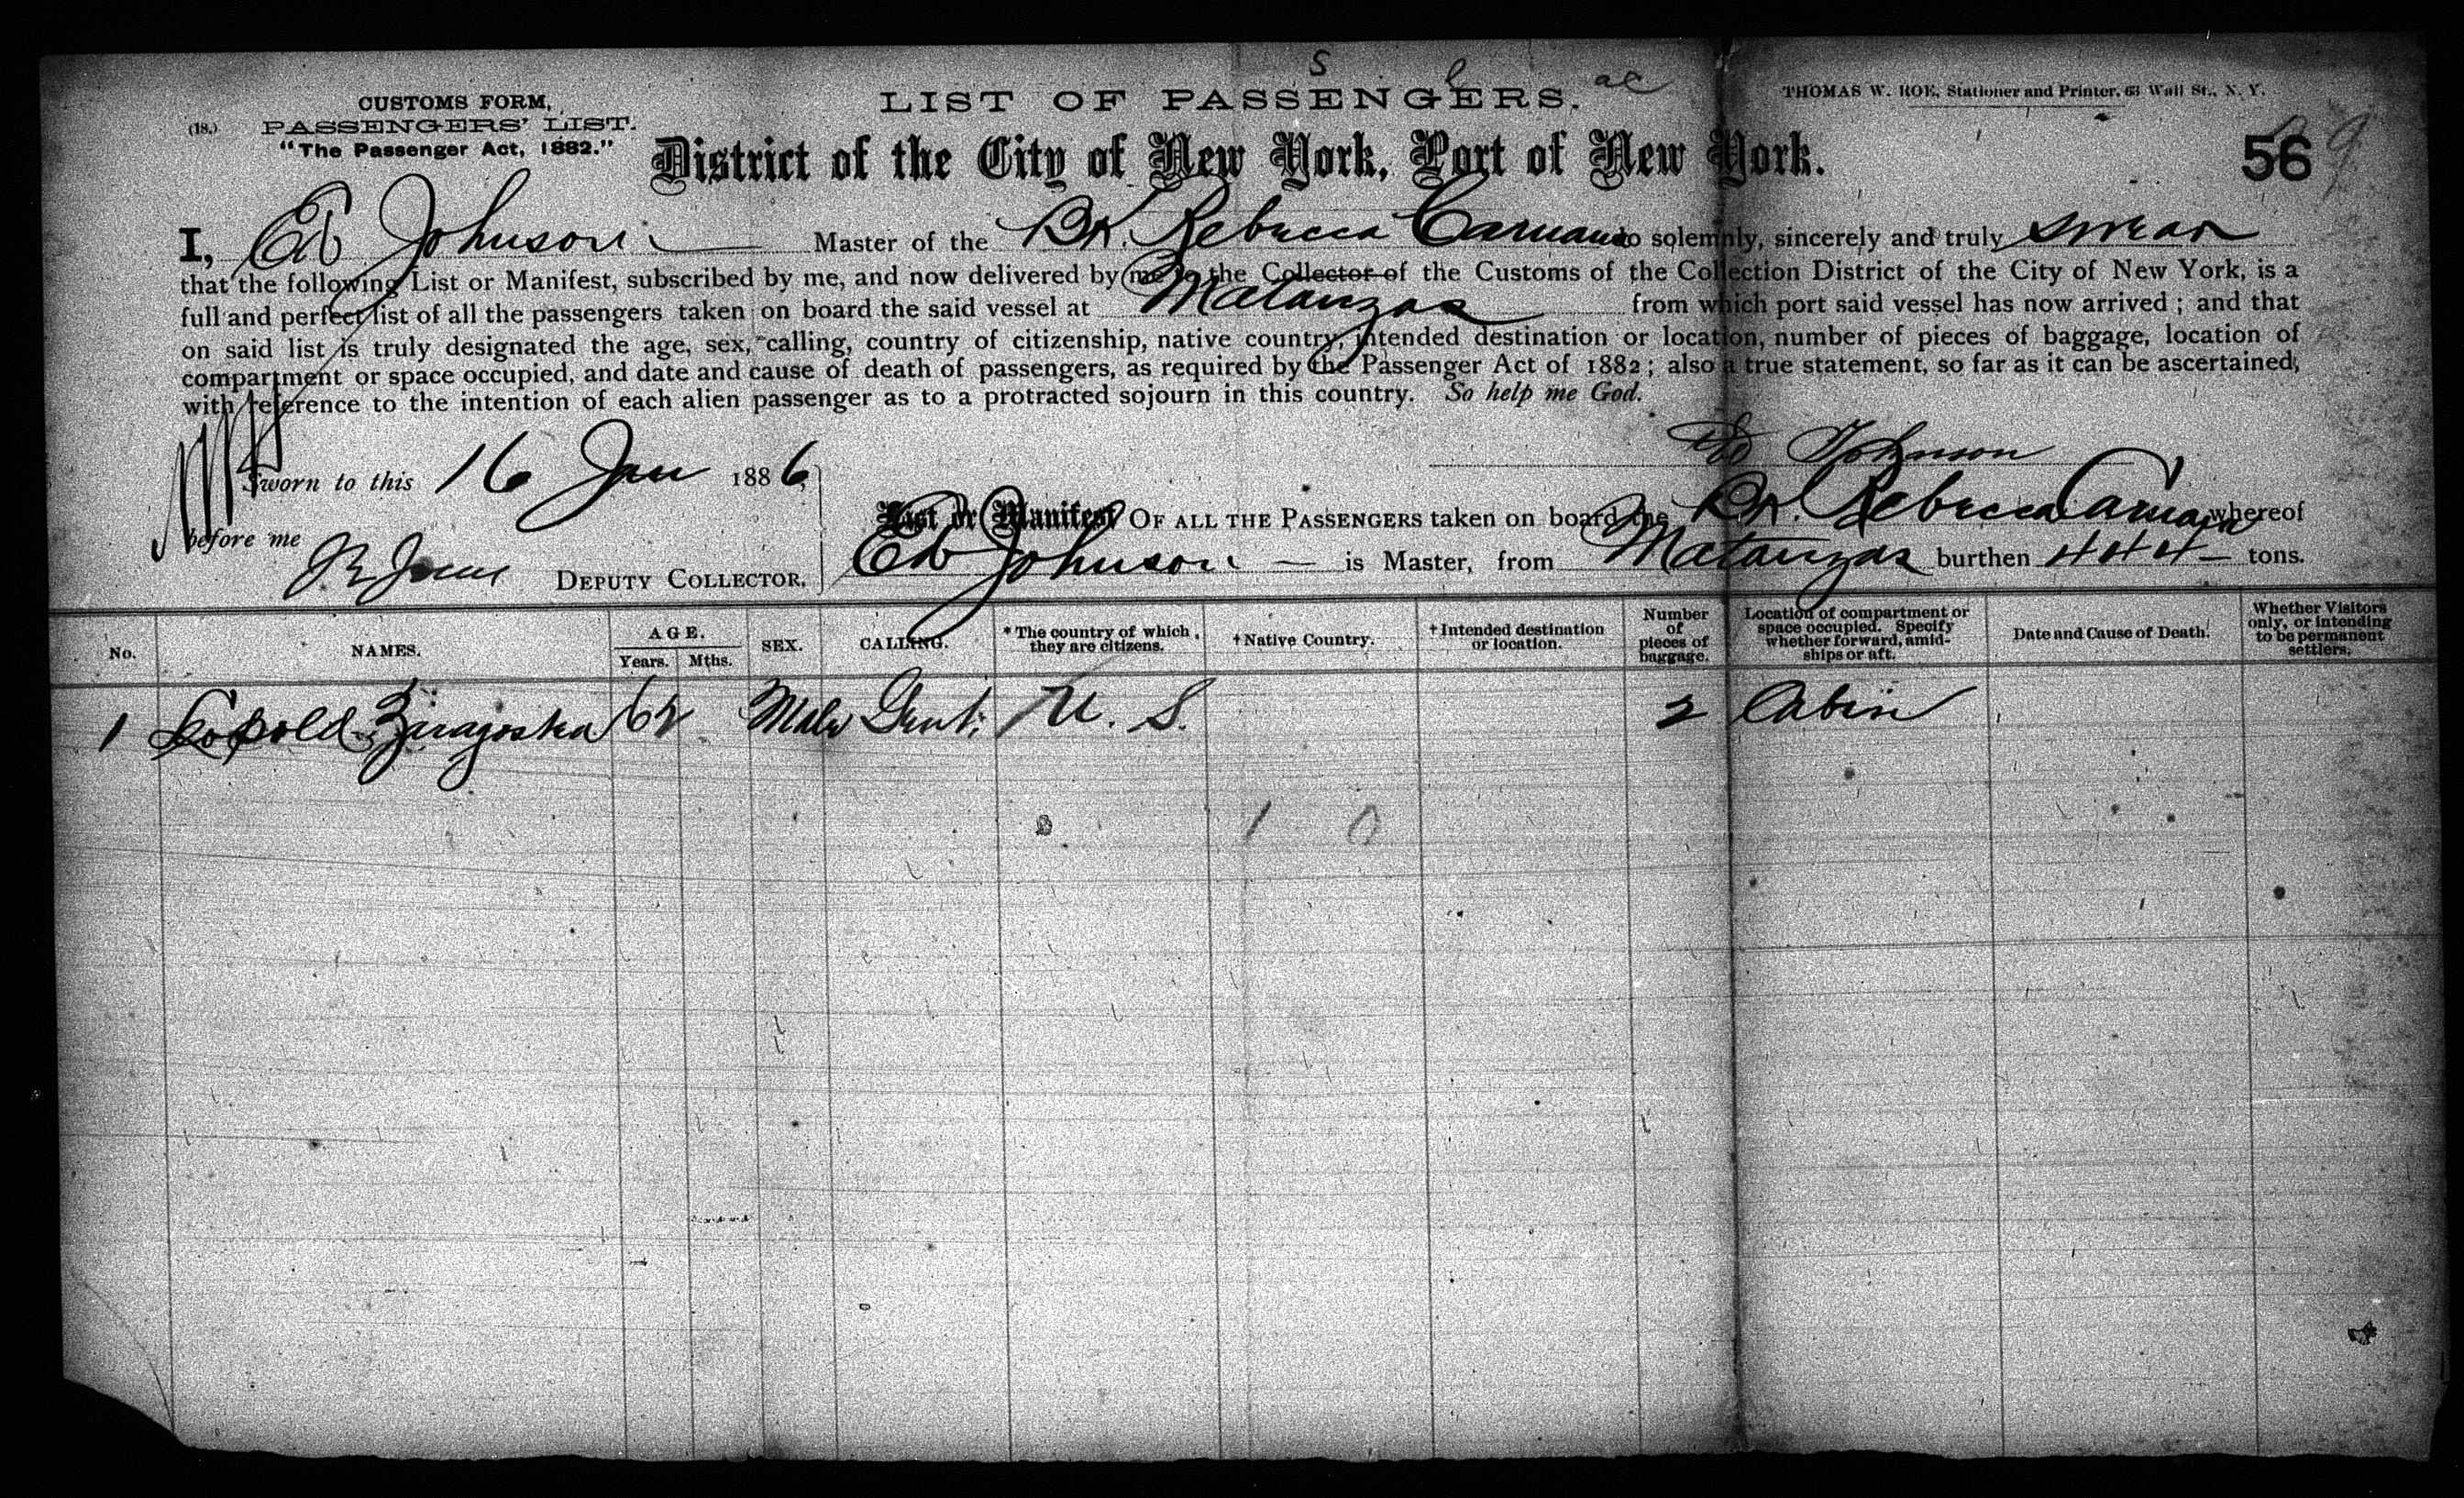 S l ac
CUSTOMS FORM,
(18.) PASSENGERS' LIST.
"The Passenger Act, 1882."
LIST OF PASSENGERS.
THOMAS W. ROE, Stationer and Printer, 63 Wall St., N. Y.
District of the City of New York, Port of New York.
56
9
I, Ed Johnson Master of the Bk. Rebecca do solemnly, sincerely and truly swear
that the following List or Manifest, subscribed by me, and now delivered by me to the Collector of the Customs of the Collection District of the City of New York, is a
full and perfect list of all the passengers taken on board the said vessel at Matanzas from which port said vessel has now arrived; and that
on said list is truly designated the age, sex, calling, country of citizenship, native country, intended destination or location, number of pieces of baggage, location of
compartment or space occupied, and date and cause of death of passengers, as required by the Passenger Act of 1882; also a true statement, so far as it can be ascertained,
with reference to the intention of each alien passenger as to a protracted sojourn in this country. So help me God.
Ed Johnson
Sworn to this 16 Jan 1886,
before me
DEPUTY COLLECTOR.
List or Manifest OF ALL THE PASSENGERS taken on board the Bk. Rebecca whereof
Ed Johnson is Master, from Matanzas burthen 444 tons.
No. NAMES. AGE. Years. Mths. SEX. CALLING. * The country of which they are citizens. † Native Country. † Intended destination or location. Number of pieces of baggage. Location of compartment or space occupied. Specify whether forward, amidships or aft. Date and Cause of Death. Whether Visitors only, or intending to be permanent settlers.
1 Leopold 62 Male Gent. U. S. 2 Cabin
1 0